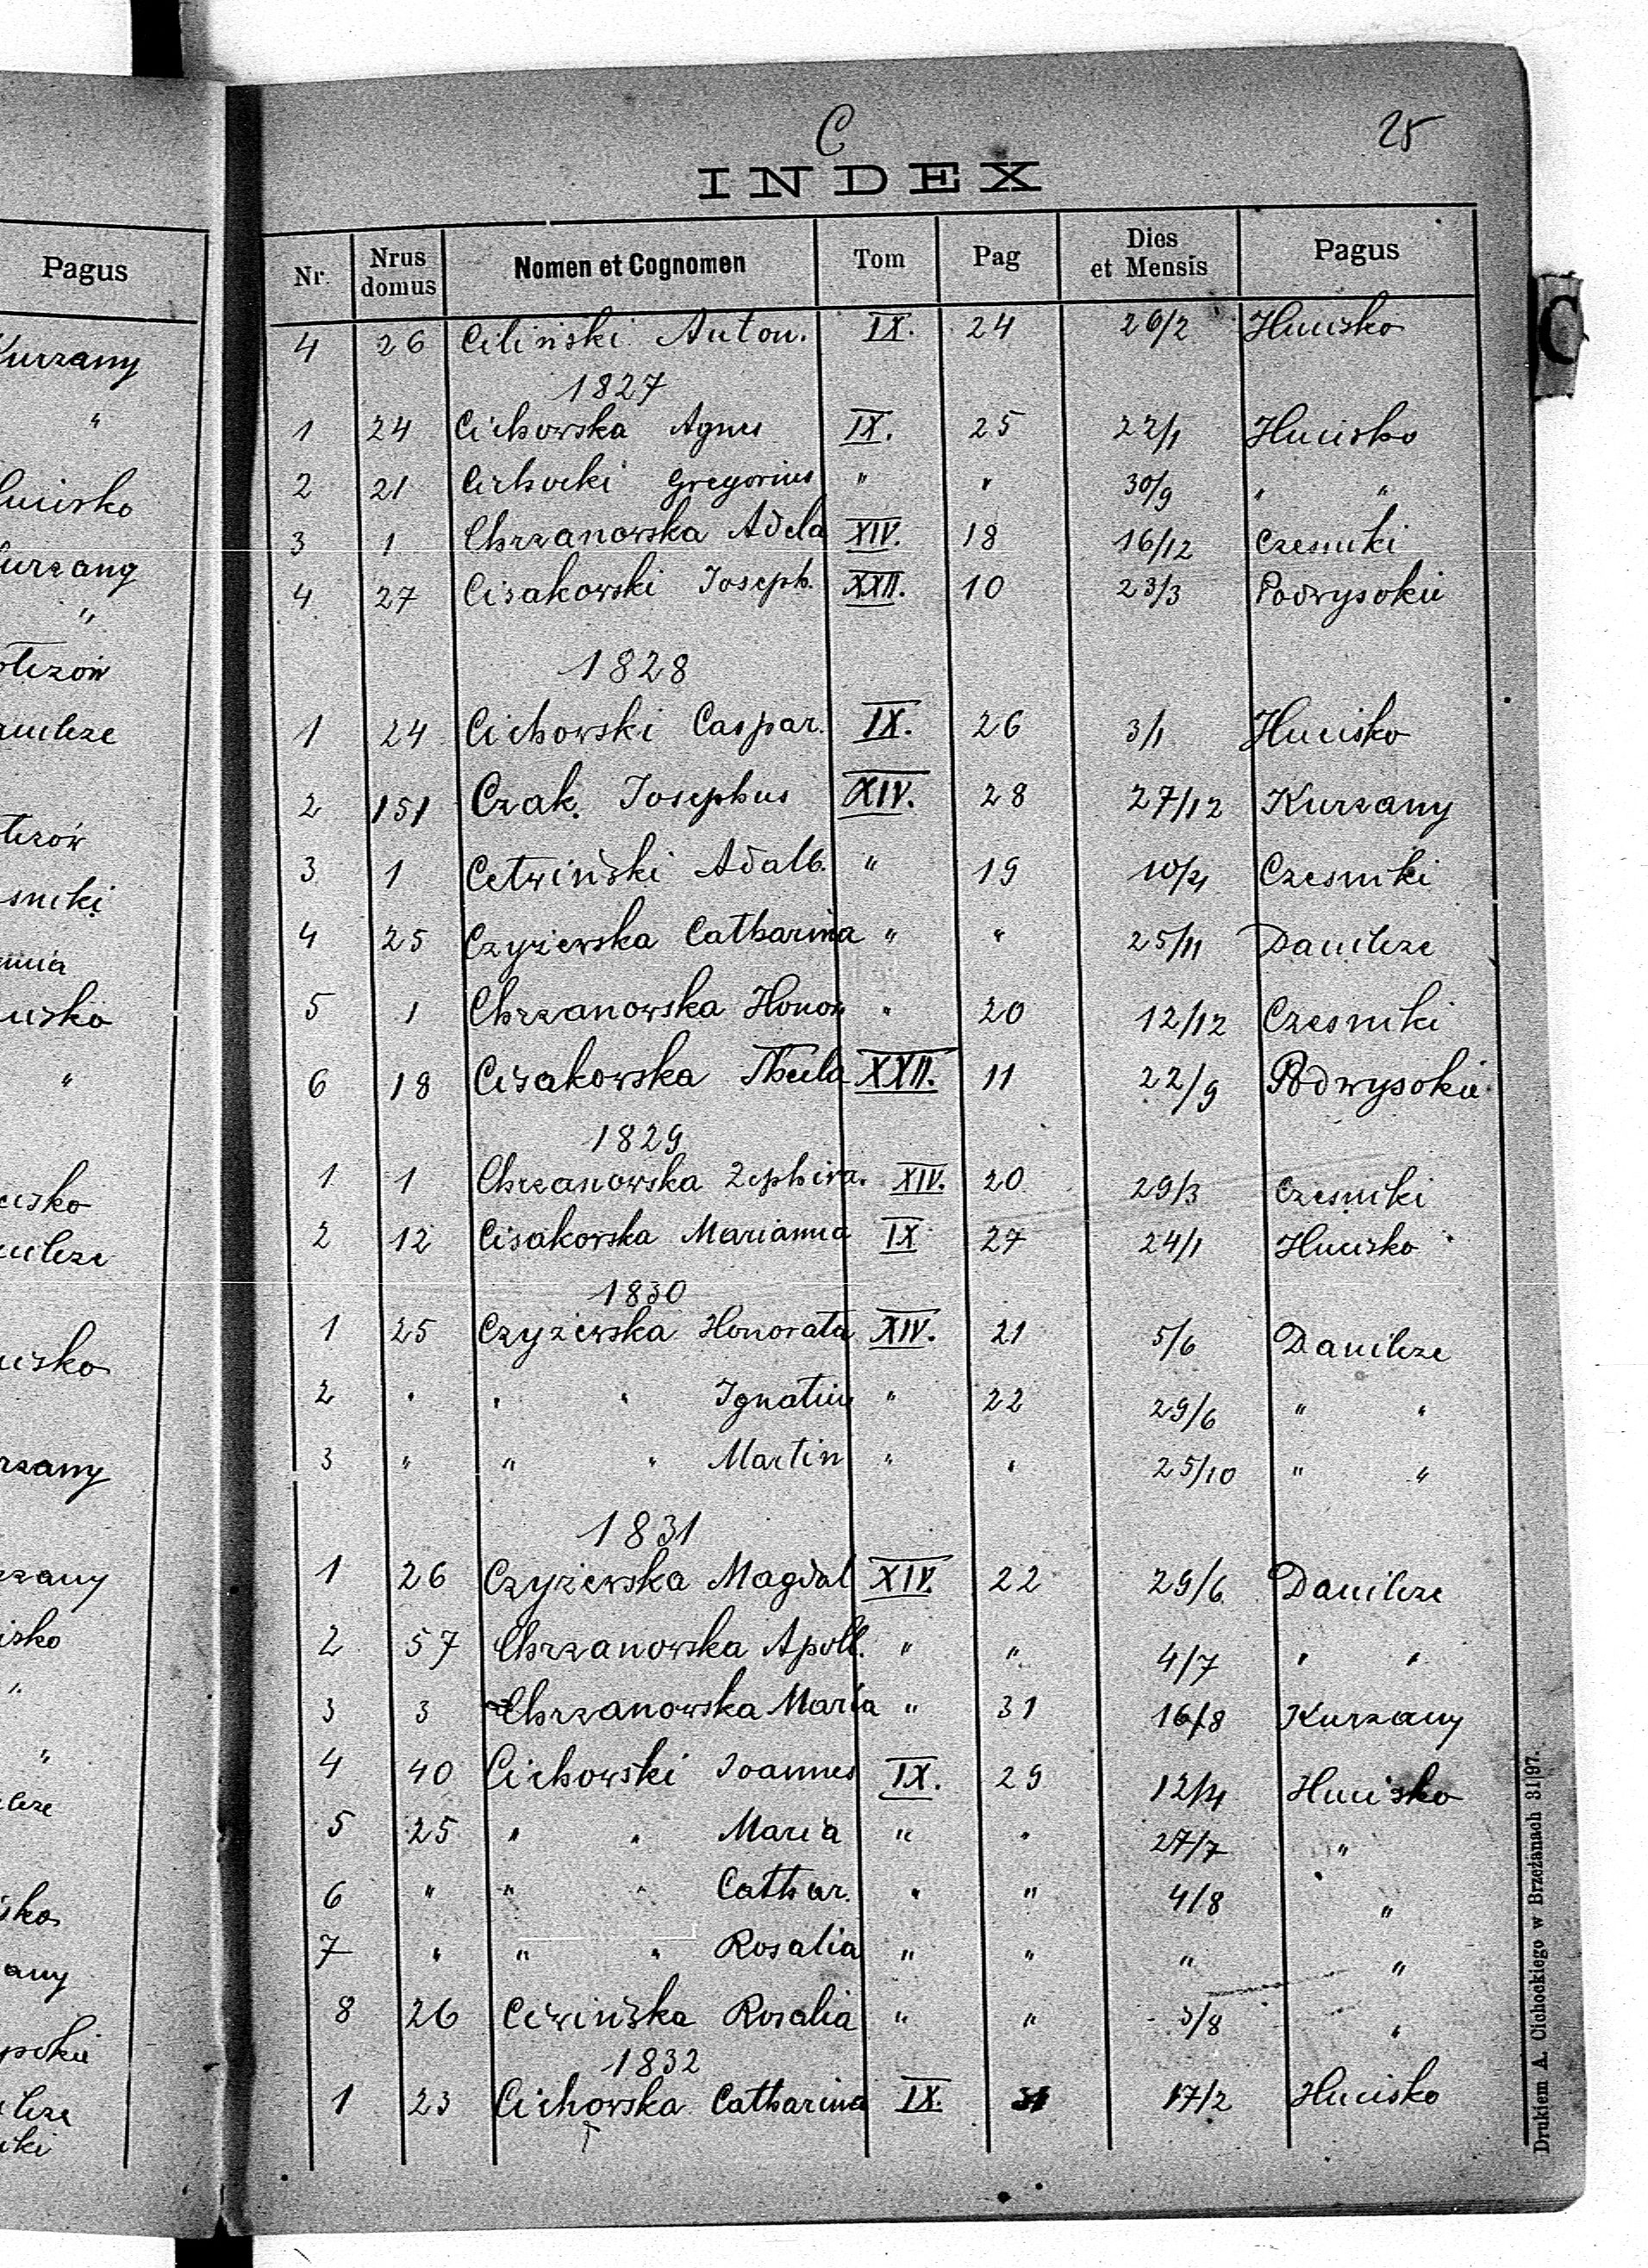 Pagus
Kurzany
"
Hucisko
Kurzany
"
"
C
25
INDEX
Nr. Nrus domus Nomen et Cognomen Tom Pag Dies et Mensis Pagus
4 26 Ciliński Anton. IX. 24 26/2 Hucisko
1827
1 24 Cichowska Agnes IX. 25 22/1 Hucisko
2 21 Cichocki Gregorius " " 30/9 " "
3 1 Chrzanowska Adela XIV. 18 16/12 Czesniki
4 27 Cisakowski Joseph. XXII. 10 23/3 Podwysokie
1828
1 24 Cichowski Caspar. IX. 26 3/1 Hucisko
2 151 Czak. Josephus XIV. 28 27/12 Kurzany
3 1 Cetwiński Adalb. " 19 10/4 Czesniki
4 25 Czyżewska Catharina " " 25/11 Danilcze
5 1 Chrzanowska Honor " 20 12/12 Czesniki
6 18 Cisakowska Thecla XXII. 11 22/9 Podwysokie
1829
1 1 Chrzanowska Zephira. XIV. 20 29/3 Czesniki
2 12 Cisakowska Marianna IX 27 24/1 Hucisko
1830
1 25 Czyżewska Honorata XIV. 21 5/6 Danilcze
2 " " " Ignatius " 22 29/6 " "
3 " " " Martin " " 25/10 " "
1831
1 26 Czyżewska Magdal XIV. 22 29/6 Danilcze
2 57 Chrzanowska Apoll. " " 4/7 " "
3 3 Chrzanowska Maria " 31 16/8 Kurzany
4 40 Cichowski Joannes IX. 29 12/4 Hucisko
5 25 " " Maria " " 27/7 "
6 " " " Cathar. " " 4/8 "
7 " " " Rosalia " " " "
8 26 Ciwińska Rosalia " " 5/8 "
1832
1 23 Cichowska Catharina IX. 17/2 Hucisko
Drukiem A. Cichockiego w Brzeżanach 31|97.
C